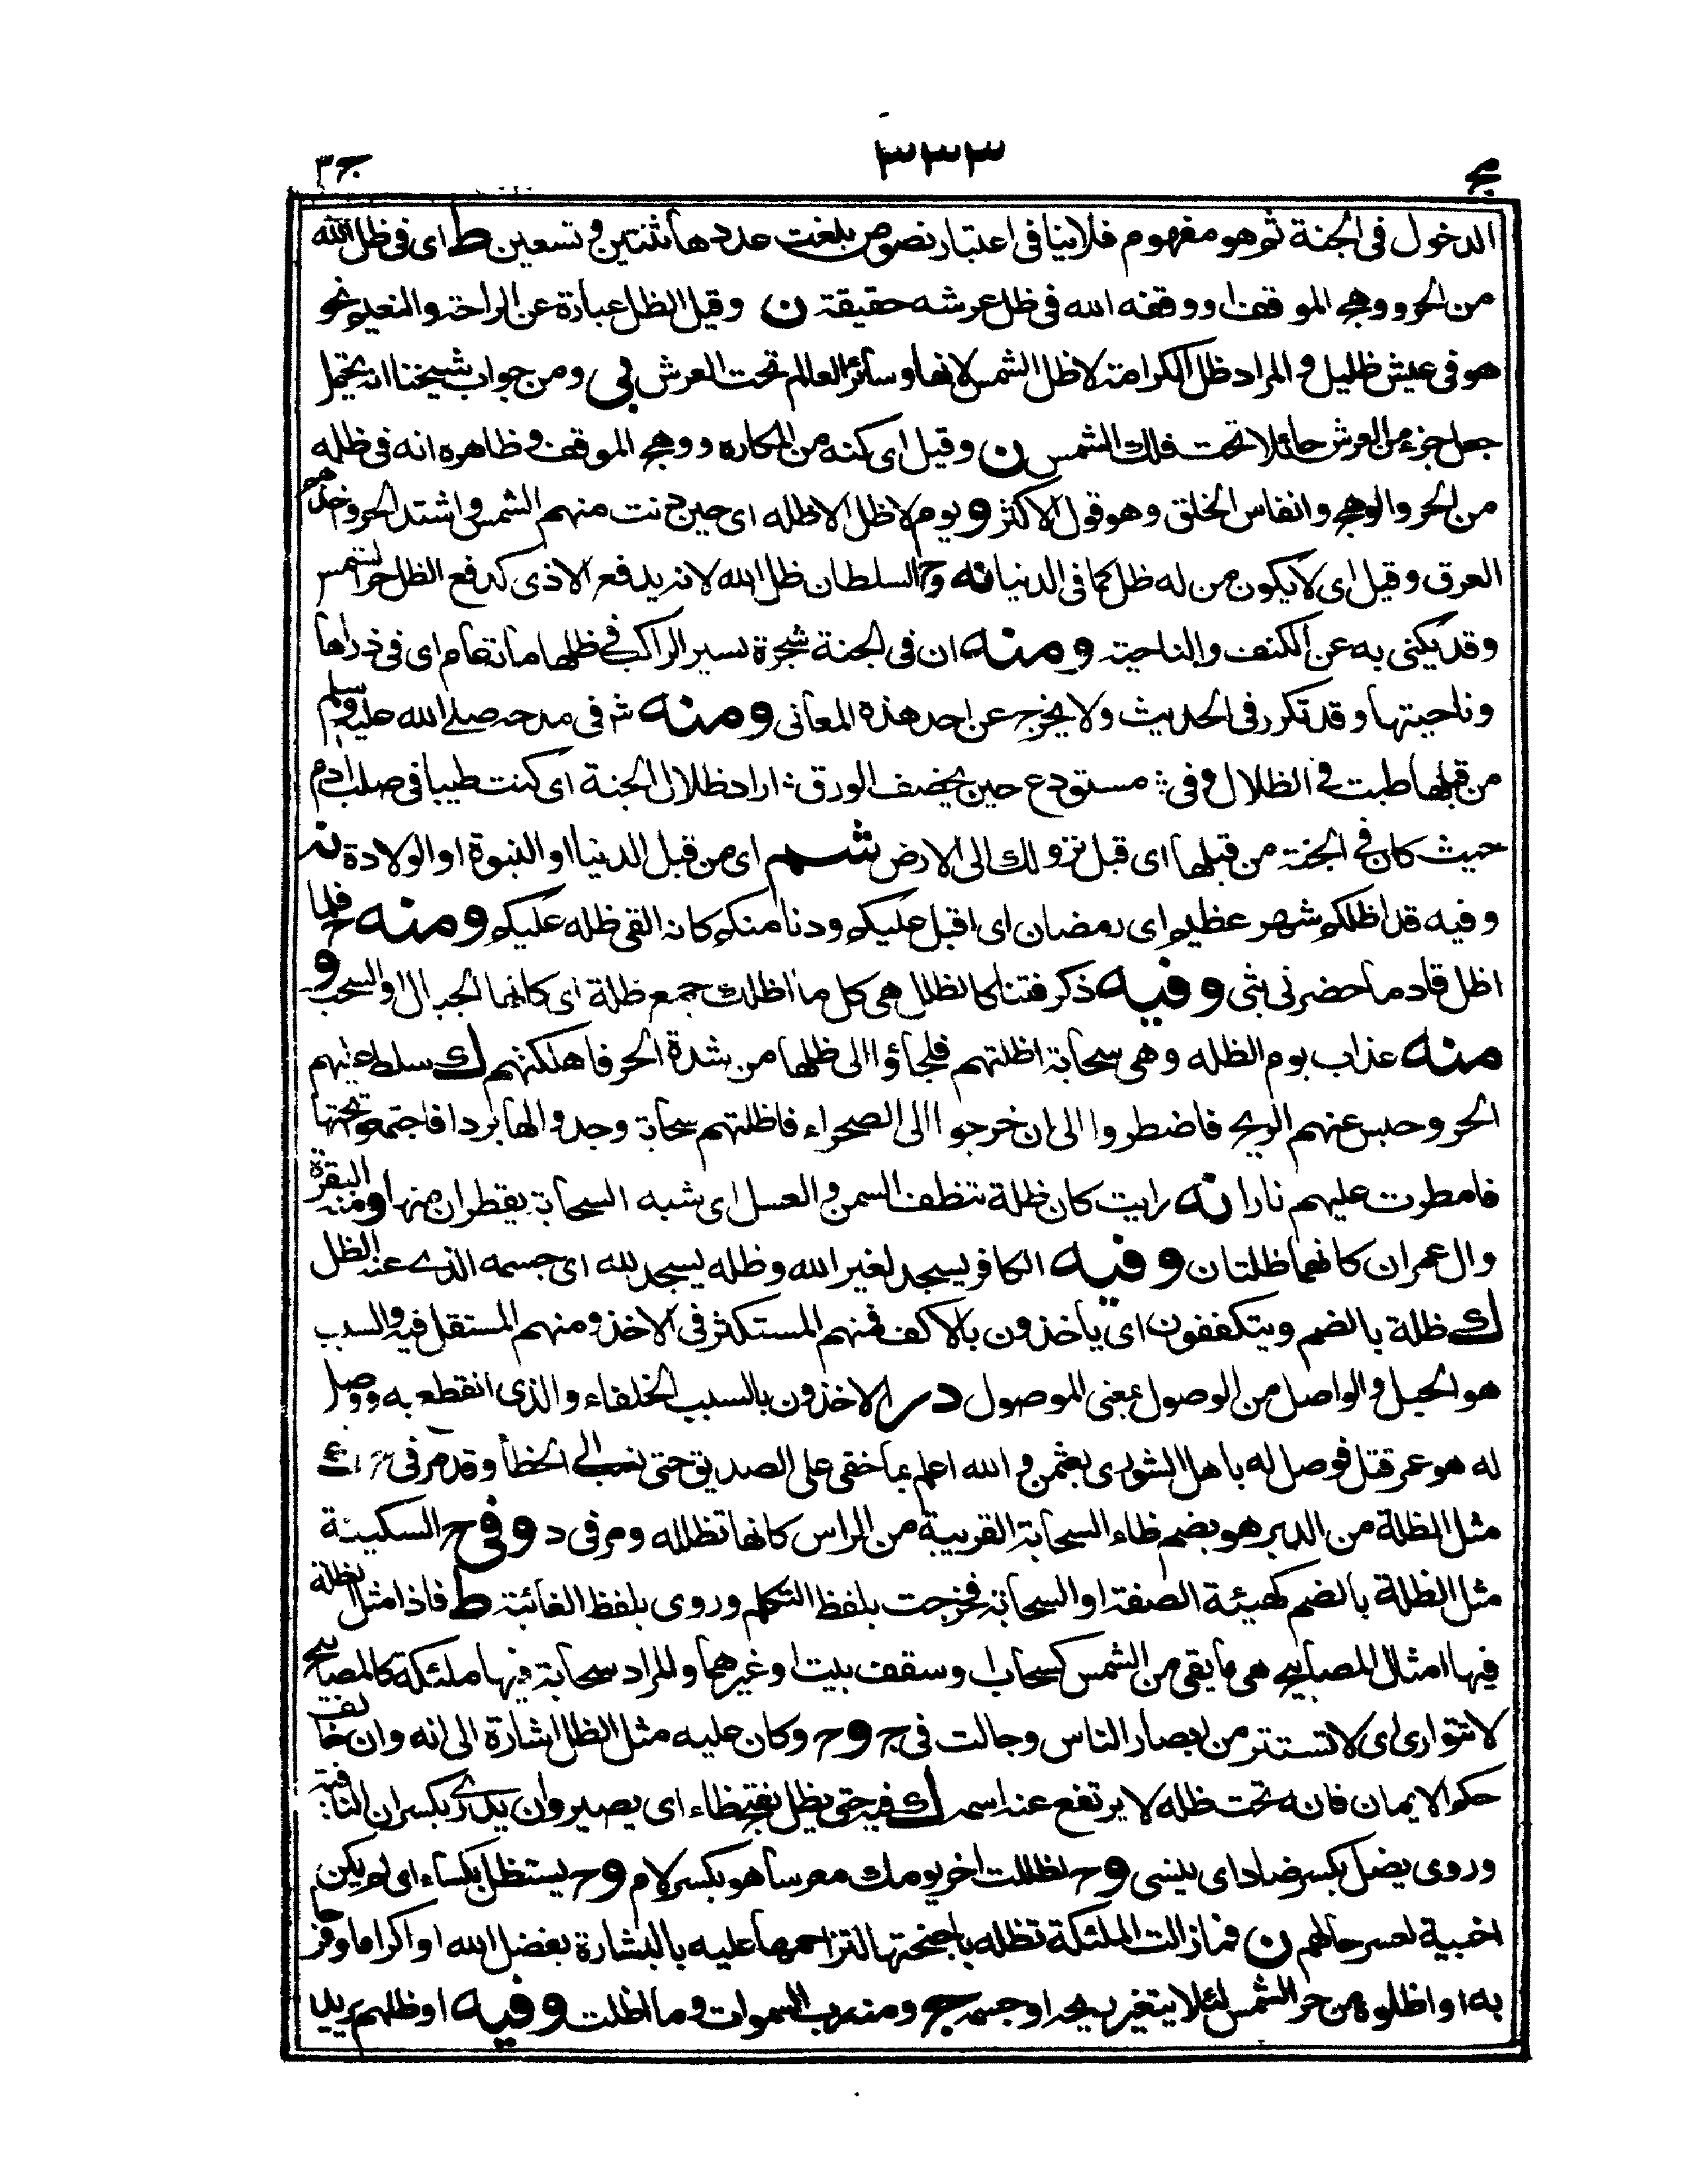 ج ٣٣٣ ج٣
الدخول فى الجنة ثم هو مفهوم فلا ينافى اعتبار نصوص بلغت عددها ثنتين وتسعين ط اى فى ظل الله
من الحر ووهج الموقف او وقفه الله فى ظل عرشه حقيقة ن وقيل الظل عبارة عن الراحة والنعيم نحو
هو فى عيش ظليل والمراد ظل الكرامة لا ظل الشمس لانها وسائر العالم تحت العرش بى ومن جواب شيخنا انه يحتمل
جعل جزء من العرش حائلا تحت فلك الشمس ن وقيل اى كنه من المكاره ووهج الموقف وظاهره انه فى ظله
من الحر والوهج وانفاس الخلق وهو قول الاكثر ويوم لا ظل الا ظله اى حين دنت منهم الشمس واشتد الحر واخذهم
العرق وقيل اى لا يكون من له ظل كما فى الدنيا نه وح السلطان ظل الله لانه يدفع الاذى كدفع الظل حر الشمس
وقد يكنى به عن الكنف والناحية ومنه ان فى الجنة شجرة يسير الراكب فى ظلها مائة عام اى فى ذراها
وناحيتها وقد تكرر فى الحديث ولا يخرج عن احد هذه المعانى ومنه شعر فى مدحه صلى الله عليه وسلم
من قبلها طبت فى الظلال وفى : مستودع حين يخصف الورق : اراد ظلال الجنة اى كنت طيبا فى صلب ادم
حيث كان فى الجنة من قبلها اى قبل نزولك الى الارض شم اى من قبل الدنيا او النبوة او الولادة نه
وفيه قد اظلكم شهر عظيم اى رمضان اى اقبل عليكم ودنا منكم كانه القى ظله عليكم ومنه ح فلما
اظل قادما حضرنى بثى وفيه ذكر فتنا كالظلل هى كل ما اظلك جمع ظلة اى كانها الجبال او السحب و
منه عذاب يوم الظله وهى سحابة اظلتهم فلجاؤا الى ظلها من شدة الحر فاهلكتهم ك سلط عليهم
الحر وحبس عنهم الريح فاضطروا الى ان خرجوا الى الصحراء فاظلتهم سحابة وجدوا لها بردا فاجتمعوا تحتها
فامطرت عليهم نارا نه رايت كان ظلة تنطف السمن والعسل اى شبه السحابة يقطران منها ومنه البقرة
وال عمران كانهما ظلتان وفيه الكافر يسجد لغير الله وظله يسجد لله اى جسمه الذى عنه الظل
ك ظلة بالضم ويتكففون اى ياخذون بالاكف فمنهم المستكثر فى الاخذ ومنهم المستقل فيه والسبب
هو الحبل والواصل من الوصول بمعنى الموصول در الاخذون بالسبب الخلفاء والذى انقطع به ووصل
له هو عمر قتل فوصل له باهل الشورى بعثمن والله اعلم بما خفى على الصديق حتى نسب الى الخطأ وقد مر فى
مثل الظلة من الدبر هو بضم ظاء السحابة القريبة من الراس كانها تظلله ومر فى د وفى ح السكينة
مثل الظلة بالضم كهيئة الصفة او السحابة فخرجت بلفظ التكلم وروى بلفظ الغائبة ط فاذا مثل الظلة
فيها امثال المصابيح هى ما يقى من الشمس كسحاب او سقف بيت او غيرهما والمراد سحابة فيها ملئكة كالمصابيح
لا تتوارى اى لا تستتر من ابصار الناس وجالت فى ج وح وكان عليه مثل الظل اشارة الى انه وان خالف
حكم الايمان فانه تحت ظله لا يرتفع عنه اسمه ك فيه حتى يظل بفتح ظاء اى يصير وان يدرى بكسر ان النافية
وروى يضل بكسر ضاد اى ينسى وح نظللت اخر يومك معرسا هو بكسر لام وح يستظل بكساء اى لم يكن لهم
اخبية لعسر حالهم ن فما زالت الملئكة تظله باجنحتها لتزاحمها عليه بالبشارة بفضل الله او اكراما وفر
به او اظلوه من حر الشمس لئلا يتغير ريحه او جسمه ج ومنه رب السموات وما اظلت وفيه او ظلهم يريد